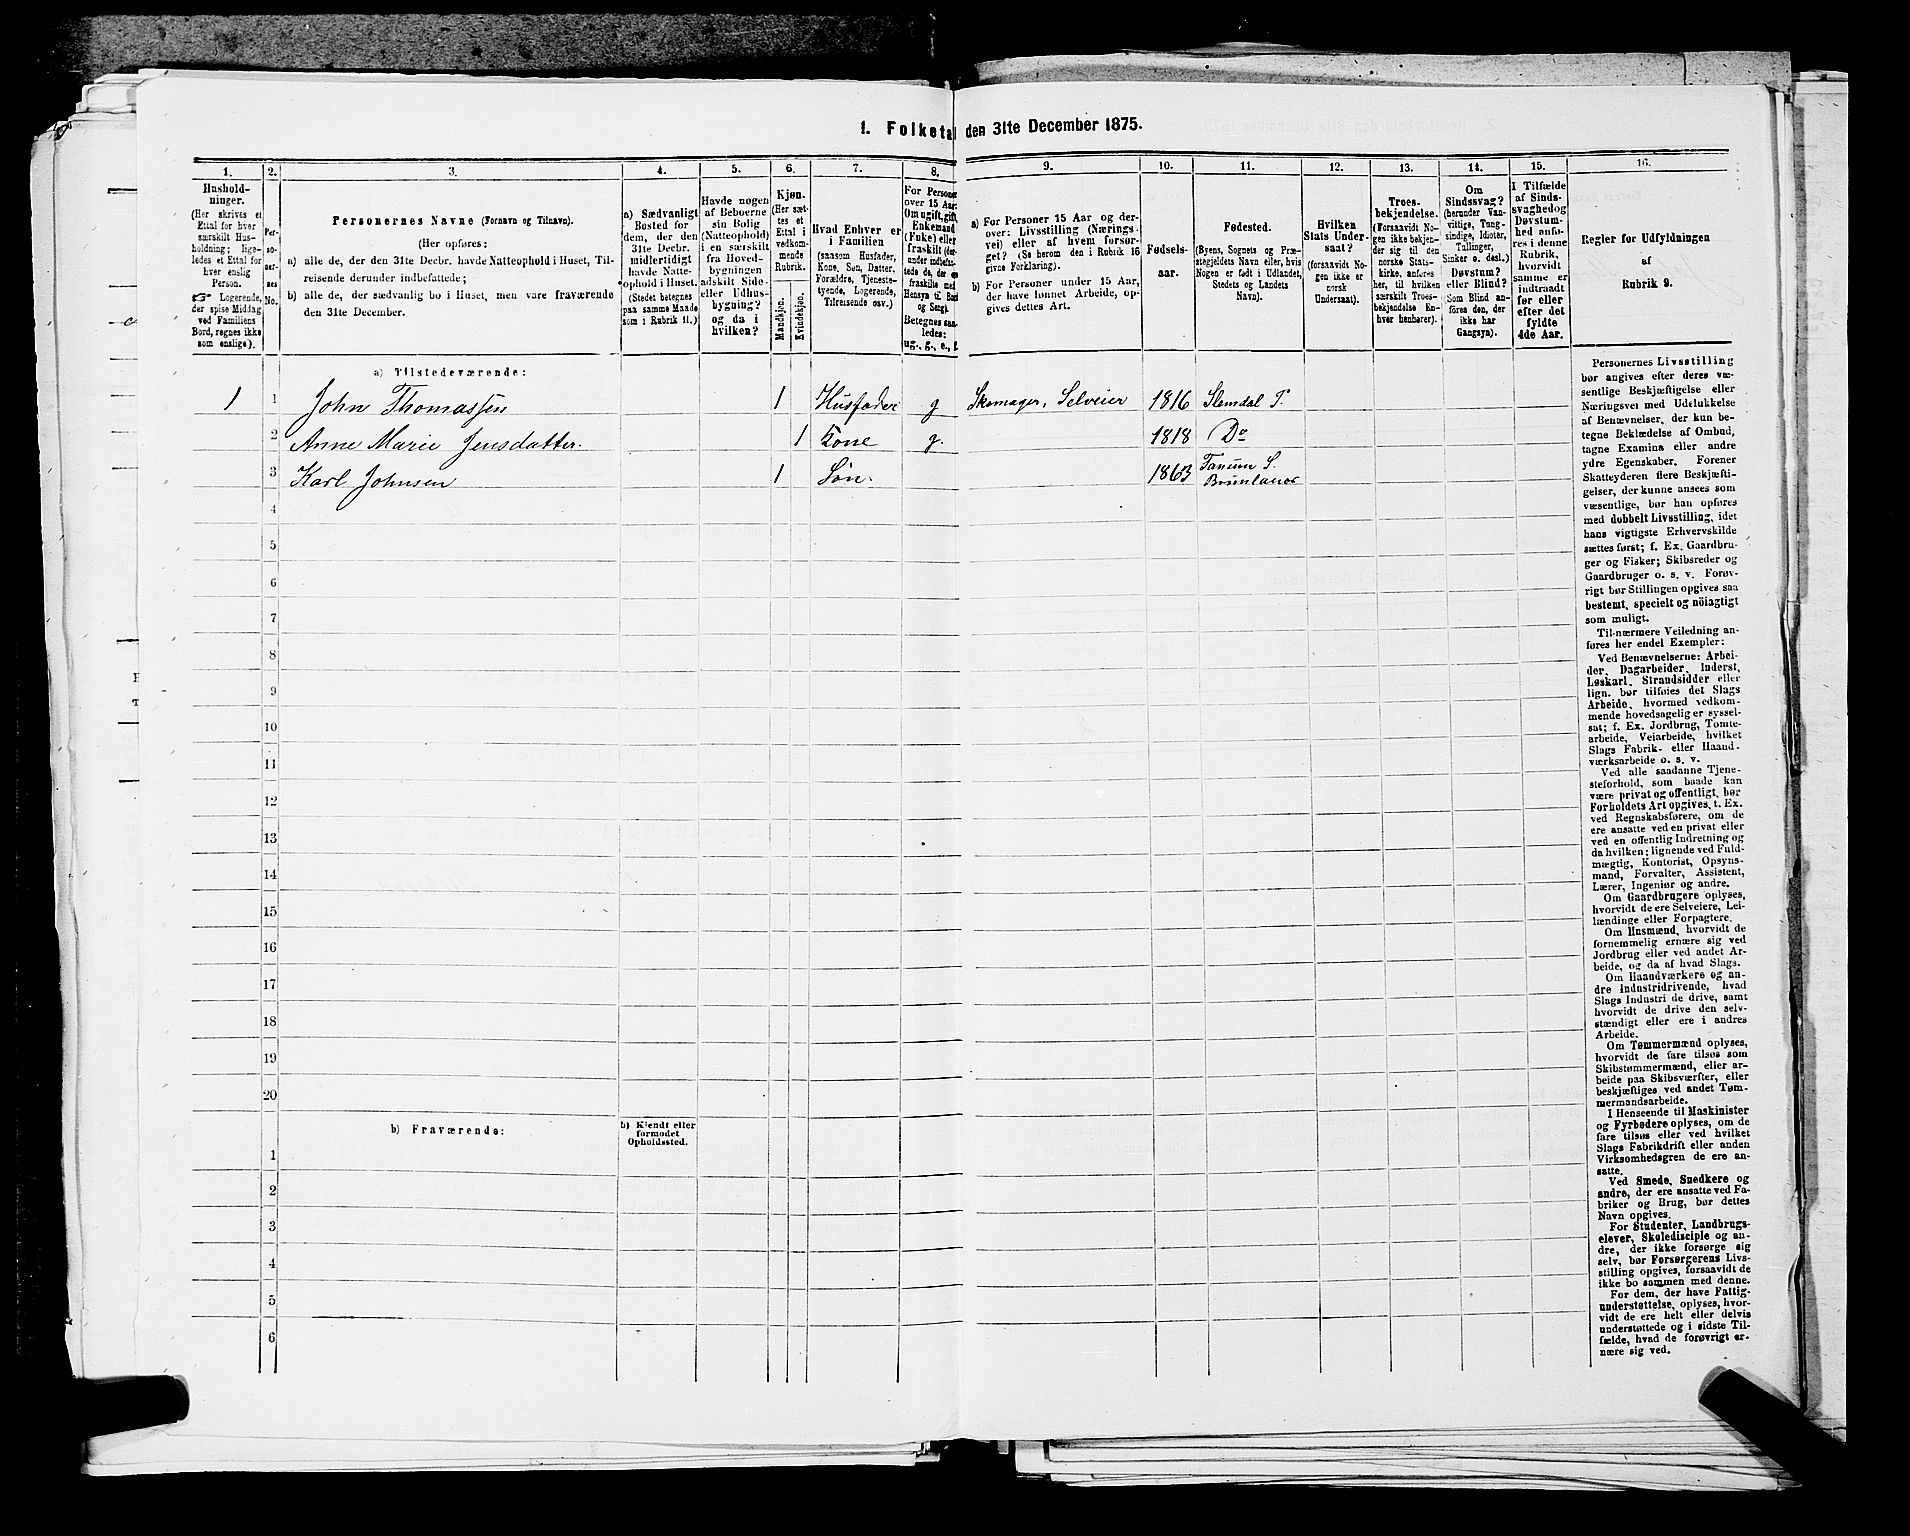 1. Folketal den 31te December 1875.
1. 2. 3. 4. 5. 6. 7. 8. 9. 10. 11. 12. 13. 14. 15. 16.
Hushold-
ninger.
(Her skrives et
Ettal for hver
særskilt Hus-
holdning; lige-
ledes et Ettal for
hver enslig
Person.
☞ Logerende,
der spise Middag
ved Familiens
Bord, regnes ikke
som enslige).
Per-
so-
ner-
nes
No.
Personernes Navne (Fornavn og Tilnavn).
(Her opføres:
a) alle de, der den 31te Decbr. havde Natteophold i Huset, Til-
reisende derunder indbefattede;
b) alle de, der sædvanlig bo i Huset, men vare fraværende
den 31te December.
a) Sædvanligt
Bosted for
dem, der den
31te Decbr.
midlertidigt
havde Natte-
ophold i Huset.
(Stedet betegnes
paa samme Maade
som i Rubrik 11.)
Havde nogen
af Beboerne
sin Bolig
(Natteophold)
i en særskilt
fra Hoved-
bygningen
adskilt Side-
eller Udhus-
bygning?
og da i
hvilken?
Kjøn.
(Her sæt-
tes et
Ettal i
vedkom-
mende
Rubrik.
Mandkjøn.
Kvindekjøn.
Hvad Enhver er
i Familien
(saasom Husfader,
Kone, Søn, Datter,
Forældre, Tjeneste-
tyende, Logerende,
Tilreisende osv.)
For Personer
over 15 Aar:
Om ugift, gift,
Enkemand
(Enke) eller
fraskilt
Betegnes saa-
ledes:
ug., g., e., f.
a) For Personer 15 Aar og der-
over: Livsstilling (Nærings-
vei) eller af hvem forsør-
get? (Se herom den i Rubrik 16
givne Forklaring).
b) For Personer under 15 Aar,
der have lønnet Arbeide, op-
gives dettes Art.
Fødsels-
aar.
Fødested.
(Byens, Sognets og Præ-
stegjeldets Navn eller, hvis
Nogen er født i Udlandet,
Stedets og Landets
Navn).
Hvilken
Stats Under-
saat?
(forsaavidt No-
gen ikke er
norsk
Undersaat).
Troes-
bekjendelse.
(Forsaavidt No-
gen ikke bekjen-
der sig til den
norske Stats-
kirke, anføres
her, til hvilken
særskilt Troes-
bekjendelse En-
hver henhører).
Om
Sindssvag?
(herunder Van-
vittige, Tung-
sindige, Idioter,
Tullinger,
Sinker o. desl.)
Døvstum?
eller Blind?
(Som Blind an-
føres den, der
ikke har
Gangsyn).
I Tilfælde
af Sinds-
svaghed og
Døvstum-
hed anfø-
res i denne
Rubrik,
hvorvidt
samme er
indtraadt
før eller
efter det
fyldte
4de Aar.
Regler for Udfyldningen
af
Rubrik 9.
a) Tilstedeværende:
1 1 John Thomassen 1 Husfader g Skomager, Selveier 1816 Slemdal P.
2 Anne Marie Jensdatter. 1 Kone g. 1818 Do
3 Karl Johnsen 1 Søn. 1863 Tanum S.
Brunlanes
4
5
6
7
8
9
10
11
12
13
14
15
16
17
18
19
20
b) Fraværende:
b) Kjendt eller
formodet
Opholdssted.
1
2
3
4
5
6
Personernes Livsstilling
bør angives efter deres væ-
sentlige Beskjæftigelse eller
Næringsvei med Udelukkelse
af Benævnelser, der kun be-
tegne Beklædelse af Ombud,
tagne Examina eller andre
ydre Egenskaber. Forener
Skatteyderen flere Beskjæfti-
gelser, der kunne ansees som
væsentlige, bør han opføres
med dobbelt Livsstilling, idet
hans vigtigste Erhvervskilde
sættes først; f. Ex. Gaardbru-
ger og Fisker; Skibsreder og
Gaardbruger o. s. v. Forøv-
rigt bør Stillingen opgives saa
bestemt, specielt og nöiagtigt
som muligt.
Til nærmere Veiledning an-
føres her endel Exempler:
Ved Benævnelserne: Arbei-
der, Dagarbeider, Inderst,
Løskarl, Strandsidder eller
lign. bør tilføies det Slags
Arbeide, hvormed vedkom-
mende hovedsagelig er syssel-
sat; f. Ex. Jordbrug, Tomte-
arbeide, Veiarbeide, hvilket
Slags Fabrik- eller Haand-
værksarbeide o. s. v.
Ved alle saadanne Tjene-
steforhold, som baade kan
være privat og offentligt, bør
Forholdets Art opgives, t. Ex.
ved Regnskabsførere, om de
ere ansatte ved en privat eller
ved en offentlig Indretning og
da hvilken; lignende ved Fuld-
mægtig, Kontorist, Opsyns-
mand, Forvalter, Assistent,
Lærer, Ingeniør og andre.
Om Gaardbrugere oplyses,
hvorvidt de ere Selveiere, Lei-
lændinge eller Forpagtere.
Om Husmænd, hvorvidt de
fornemmelig ernære sig ved
Jordbrug eller ved andet Ar-
beide, og da af hvad Slags.
Om Haandværkere og an-
dre Industridrivende, hvad
Slags Industri de drive, samt
hvorvidt de drive den selv-
stændigt eller ere i andres
Arbeide.
Om Tømmermænd oplyses,
hvorvidt de fare tilsøs som
Skibstømmermænd, eller ar-
beide paa Skibsværfter, eller
beskjæftiges ved andet Tøm-
mermandsarbeide.
I Henseende til Maskinister
og Fyrbødere oplyses, om de
fare tilsøs eller ved hvilket
Slags Fabrikdrift eller anden
Virksomhedsgren de ere an-
satte.
Ved Smede, Snedkere og
andre, der ere ansatte ved Fa-
briker og Brug, bør dettes
Navn opgives.
For Studenter, Landbrugs-
elever, Skoledisciple og an-
dre, der ikke forsørge sig
selv, bør Forsørgerens Livs-
stilling opgives, forsaavidt de
ikke bo sammen med denne.
For dem, der have Fattig-
understøttelse, oplyses, hvor-
vidt de ere helt eller delvis
understøttede og i sidste Til-
fælde, hvad de forøvrigt er-
nære sig ved.